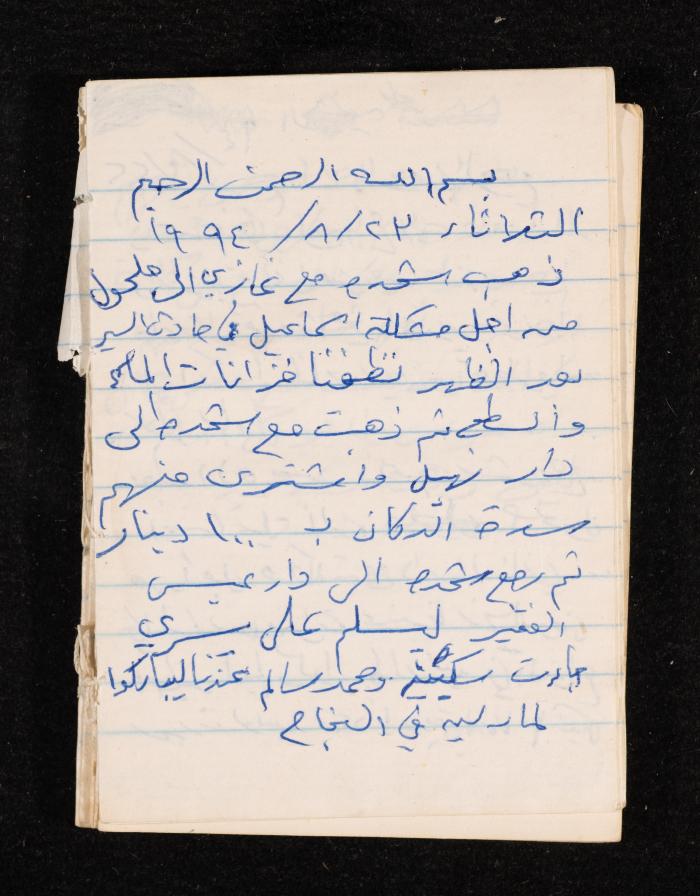 بسم الله الرحمن الرحيم
الثلاثاء ٢٣/٨/١٩٩٤
ذهب شحده مع غازي الى حلحول
من اجل مشكلة اسماعيل في حادث السير
بعد الظهر نظفنا خزانات الماء
والسطح ثم ذهبت مع شحده الى
دار نبيل واشترى منهم
سدة الدكان ب ١٠٠ دينار
ثم رجع شحده الى دار عيسى
الفقير ليسلم على سري
جاءت سكينة ومحمد سالم عندنا ليباركوا
لمارلين في النجاح